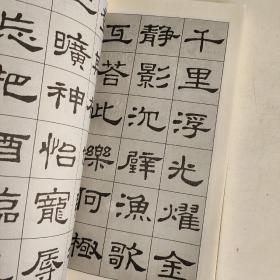 千里浮光燿金
靜影沉璧漁歌
互荅此樂何極
曠神怡寵辱
忘把酒臨